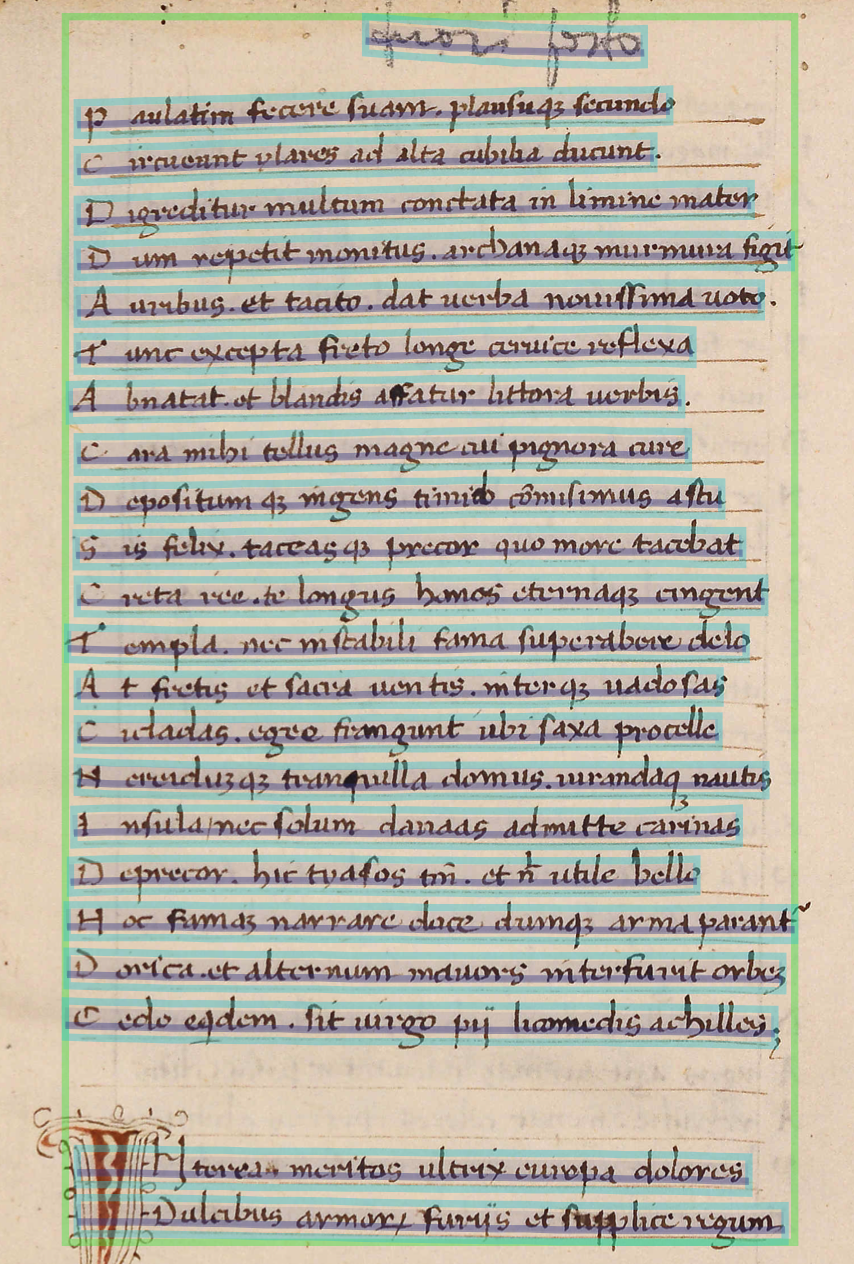 P aulatim fecere suam. plausuqꝫ secundo
C ircueunt ylares ad alta cubilia ducunt.
D igreditur multum conctata in limine mater
D um repetit monitus. archanaqꝫ murmura figit
A uribus. et tacito. dat uerba nouissima uoto.
T unc excepta freto longe ceruice reflexa
A bnatat. et blandis affatur littora uerbis.
C ara mihi tellus magne cui pignora cure
D epositum qꝫ ingens timido cōmisimus astu
S is felix. taceas qꝫ precor quo more tacebat
C reta ree. te longus honos eternaqꝫ cingent
T empla. nec instabili fama superabere delo
A t fretis et sacra uentis. inter qꝫ uadosas
C icladas. egee frangunt ubi saxa procelle
N ereiduꝫ qꝫ tranquilla domus. iurandaqꝫ nautis
I nsula/ nec solum danaas admitte carinas
D eprecor. hic tyasos tm̄. et n̄ utile bello
H oc famaꝫ narrare doce dumqꝫ arma parant᷑
D orica. et alternum mauors interfurit orbeꝫ
C edo eqdem. sit uirgo pij licomedis achilles;
INterea meritos ultrix europa dolores
Dulcibus armoꝝ furijs et supplice regum